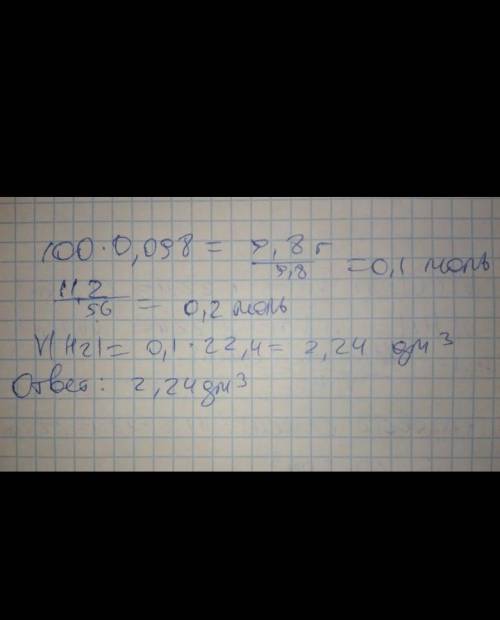 100 · 0,098 = 9,8 г / 9,8 = 0,1 моль
11,2 / 56 = 0,2 моль
V(H2) = 0,1 · 22,4 = 2,24 дм³
Ответ: 2,24 дм³